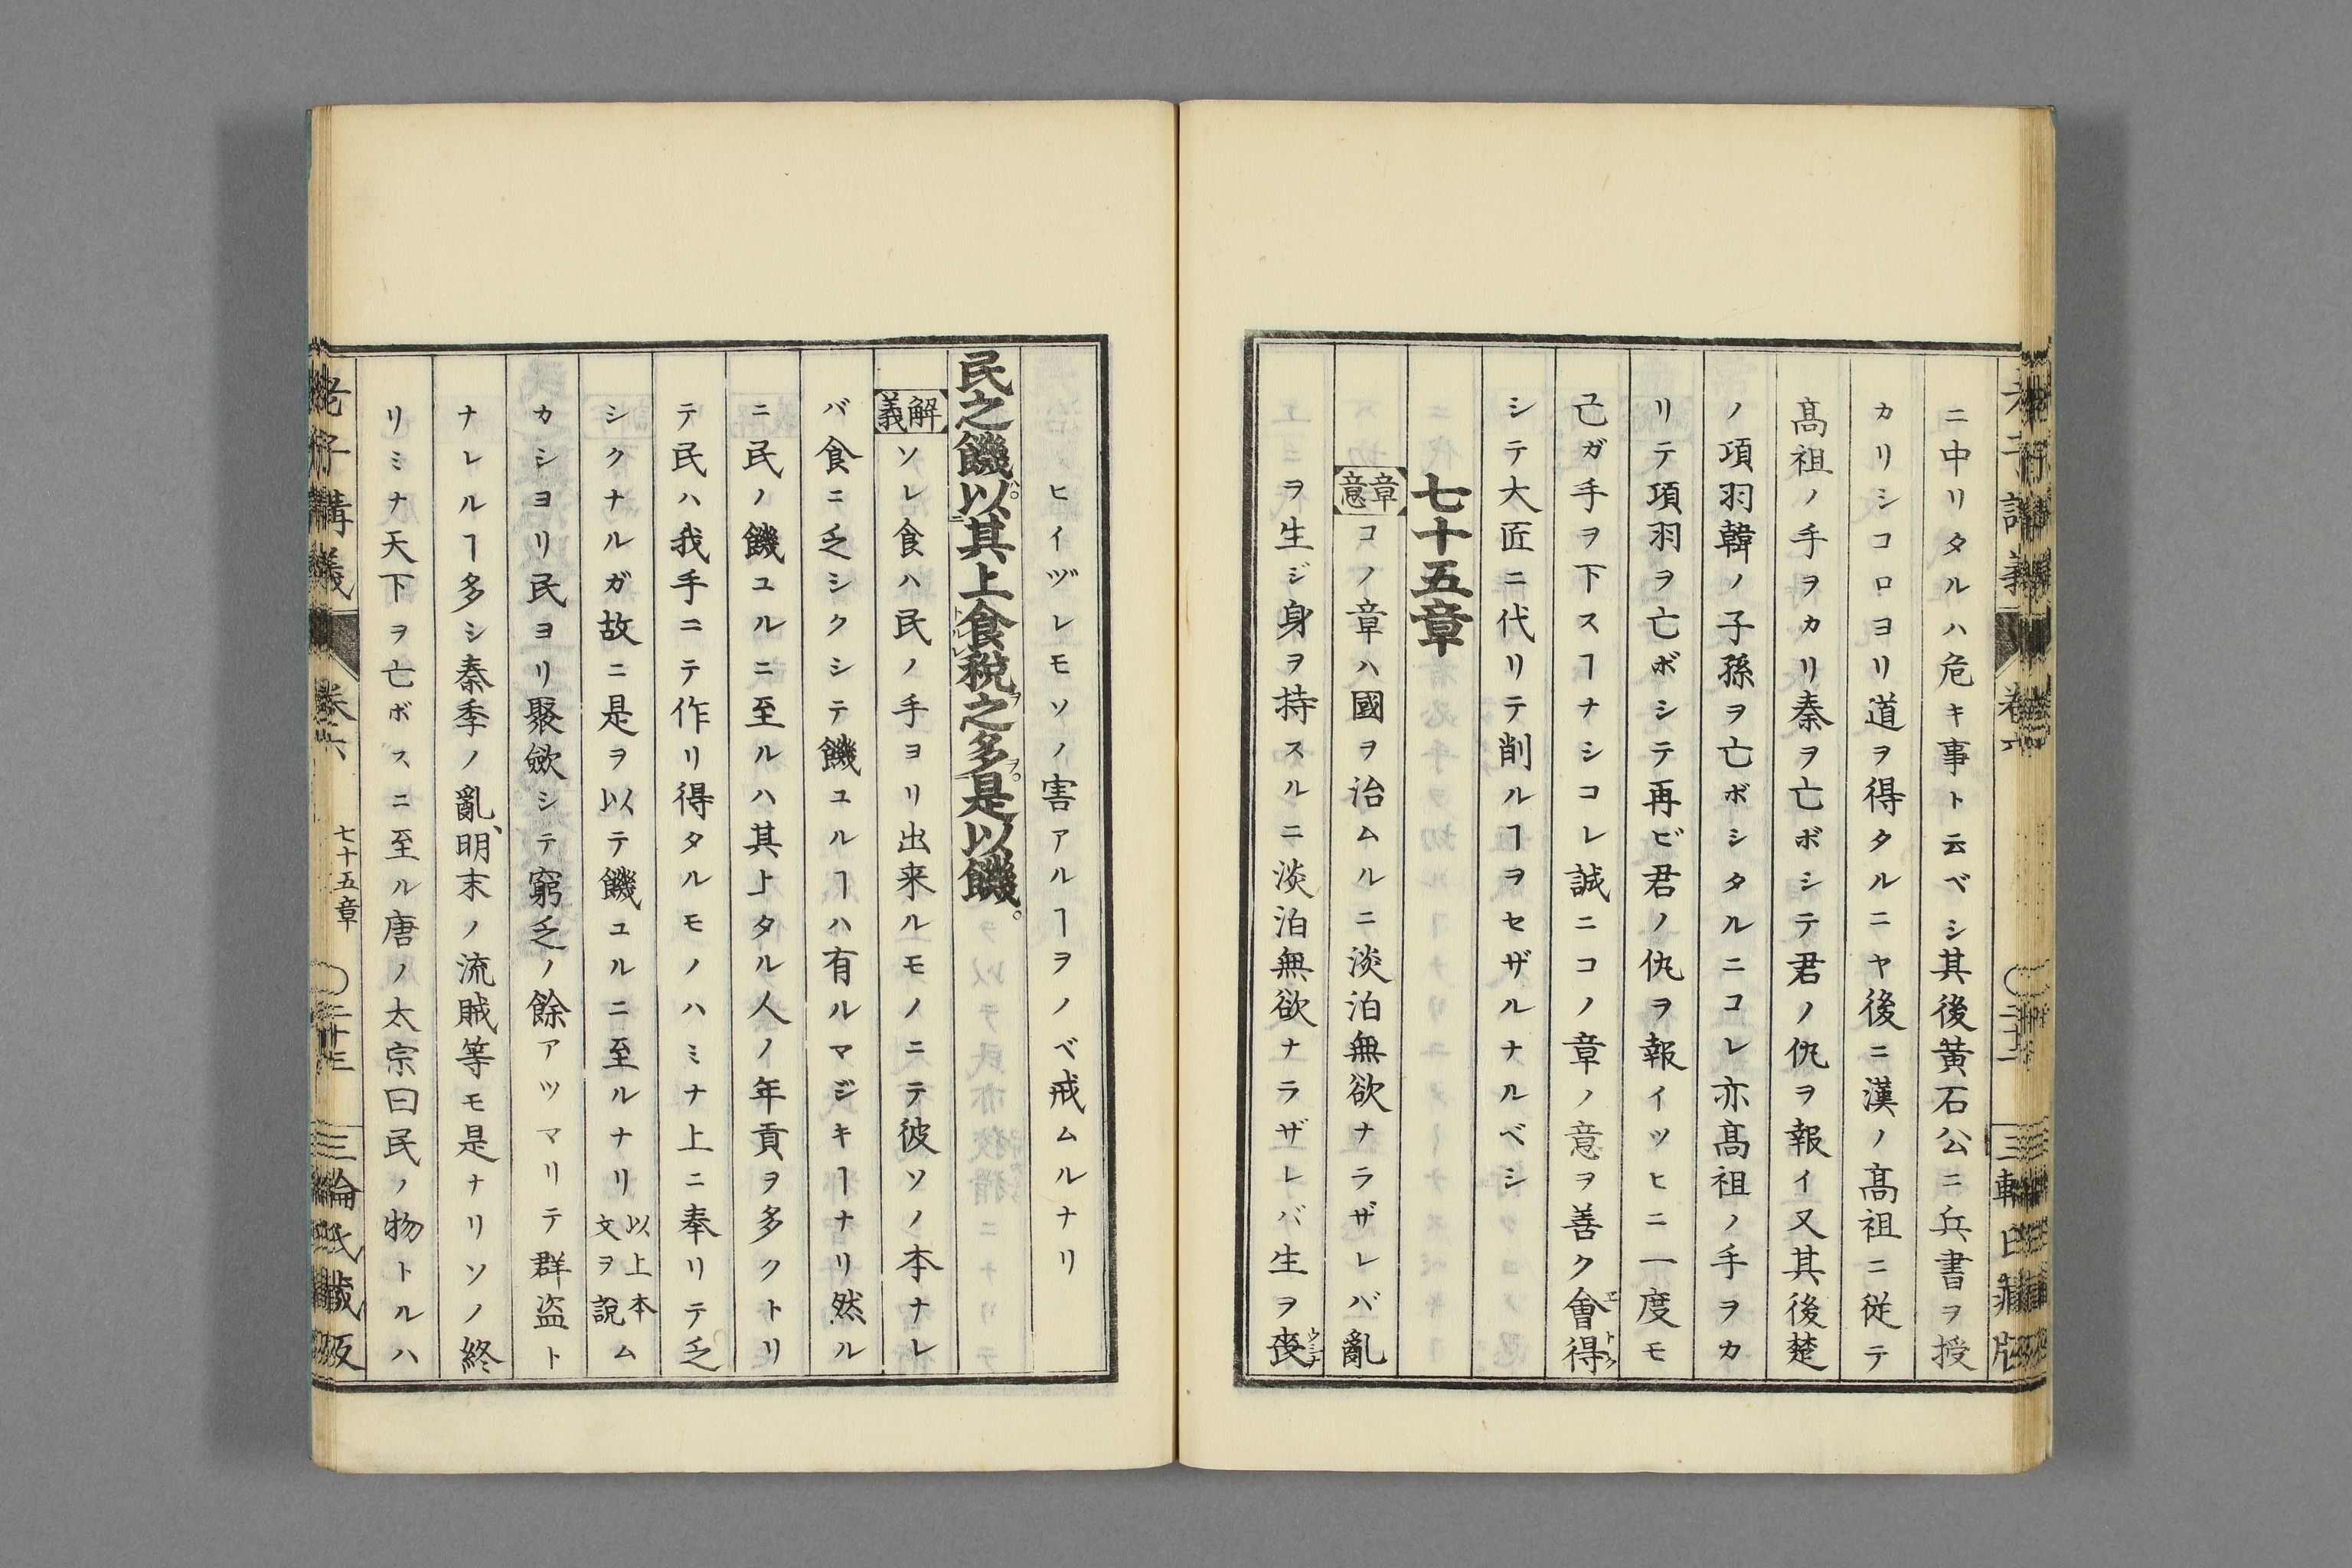 ニ中リタルハ危キ事ト云ベシ其後黄石公ニ兵書ヲ授
カリシコロヨリ道ヲ得タルニヤ後ニ漢ノ髙祖ニ従テ
髙祖ノ手ヲカリ秦ヲ亡ボシテ君ノ仇ヲ報イ又其後楚
ノ項羽韓ノ子孫ヲ亡ボシタルニコレ亦髙祖ノ手ヲカ
リテ項羽ヲ亡ボシテ再ビ君ノ仇ヲ報イツヒニ一度モ
己ガ手ヲ下スヿナシコレ誠ニコノ章ノ意ヲ善ク會得
シテ大匠ニ代リテ削ルヿヲセザルナルベシ
七十五章
章意 コノ章ハ國ヲ治ムルニ淡泊無欲ナラザレバ亂
ヲ生ジ身ヲ持スルニ淡泊無欲ナラザレバ生ヲ喪
ヒイヅレモソノ害アルヿヲノベ戒ムルナリ
民之饑以其上食税之多是以饑。
解義 ソレ食ハ民ノ手ヨリ出来ルモノニテ彼ソノ本ナレ
バ食ニ乏シクシテ饑ユルヿハ有ルマジキヿナリ然ル
ニ民ノ饑ユルニ至ルハ其上タル人ノ年貢ヲ多クトリ
テ民ハ我手ニテ作リ得タルモノハミナ上ニ奉リテ乏
シクナルガ故ニ是ヲ以テ饑ユルニ至ルナリ以上本文ヲ説ム
カシヨリ民ヨリ聚歛シテ窮乏ノ餘アツマリテ群盗ト
ナレルヿ多シ秦季ノ亂、明末ノ流賊等モ是ナリソノ終
リミナ天下ヲ亡ボスニ至ル唐ノ太宗曰民ノ物トルハ
老子講義 卷六 七十五章 〇二十三 三輪氏藏版